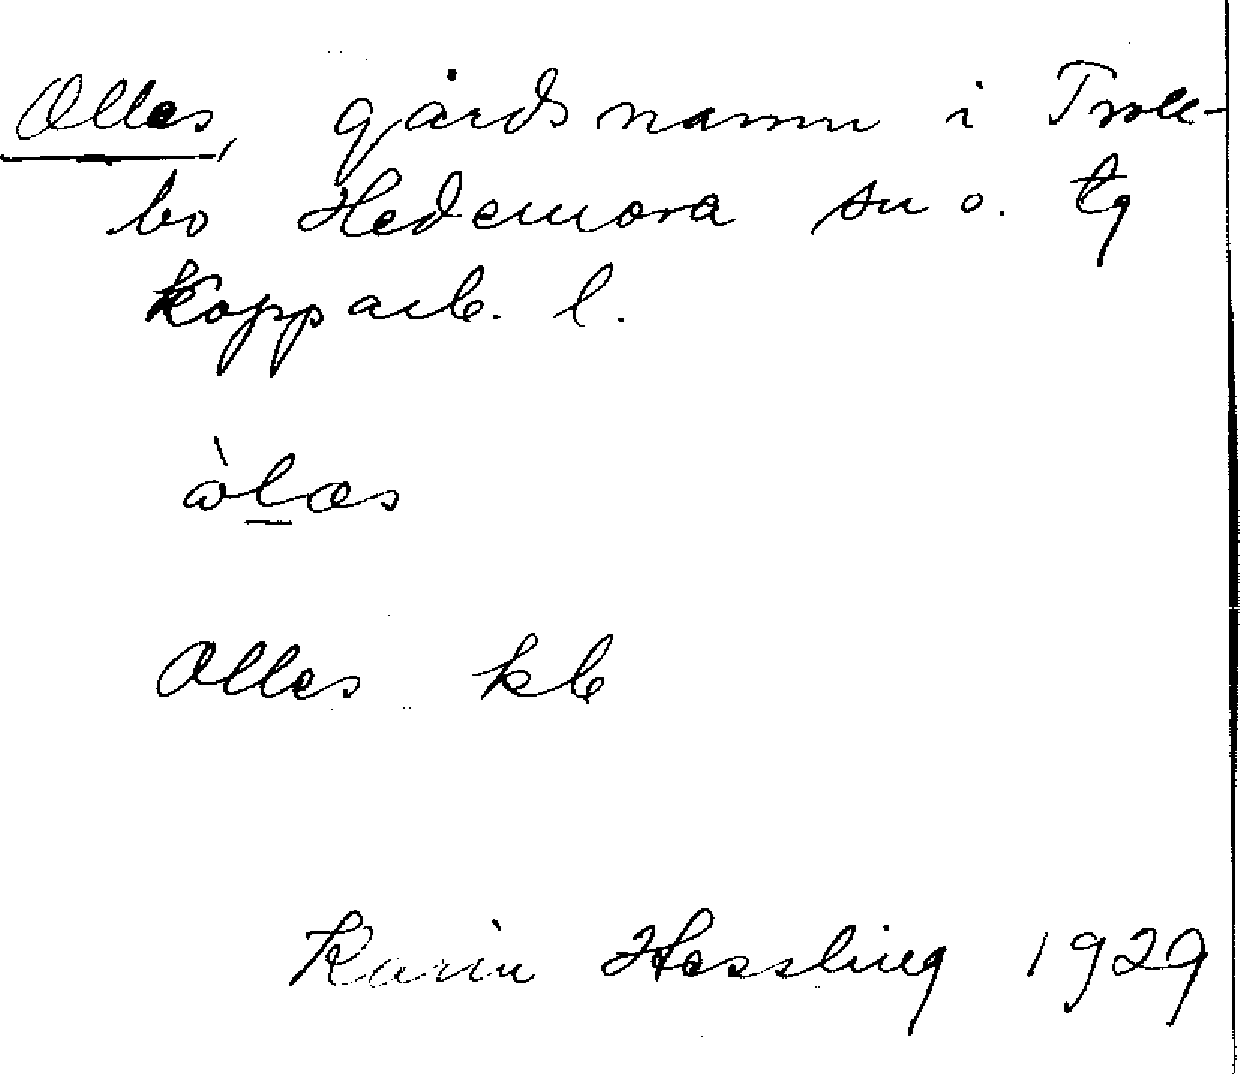 Olles, gårdsnamn i Troll-
bo Hedemora sn o. tg
Kopparb. l.
Olles kb
Karin Hessling 1929